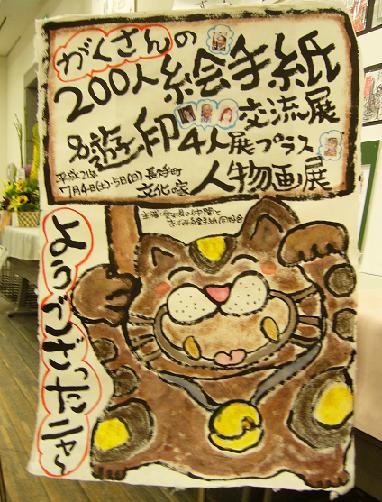 がくさんの
200人絵手紙
&遊印4人展プラス
交流展
平成21年
7月4日(土)・5日(日)
長野町
文化の家
人物画展
ようござったニャ～